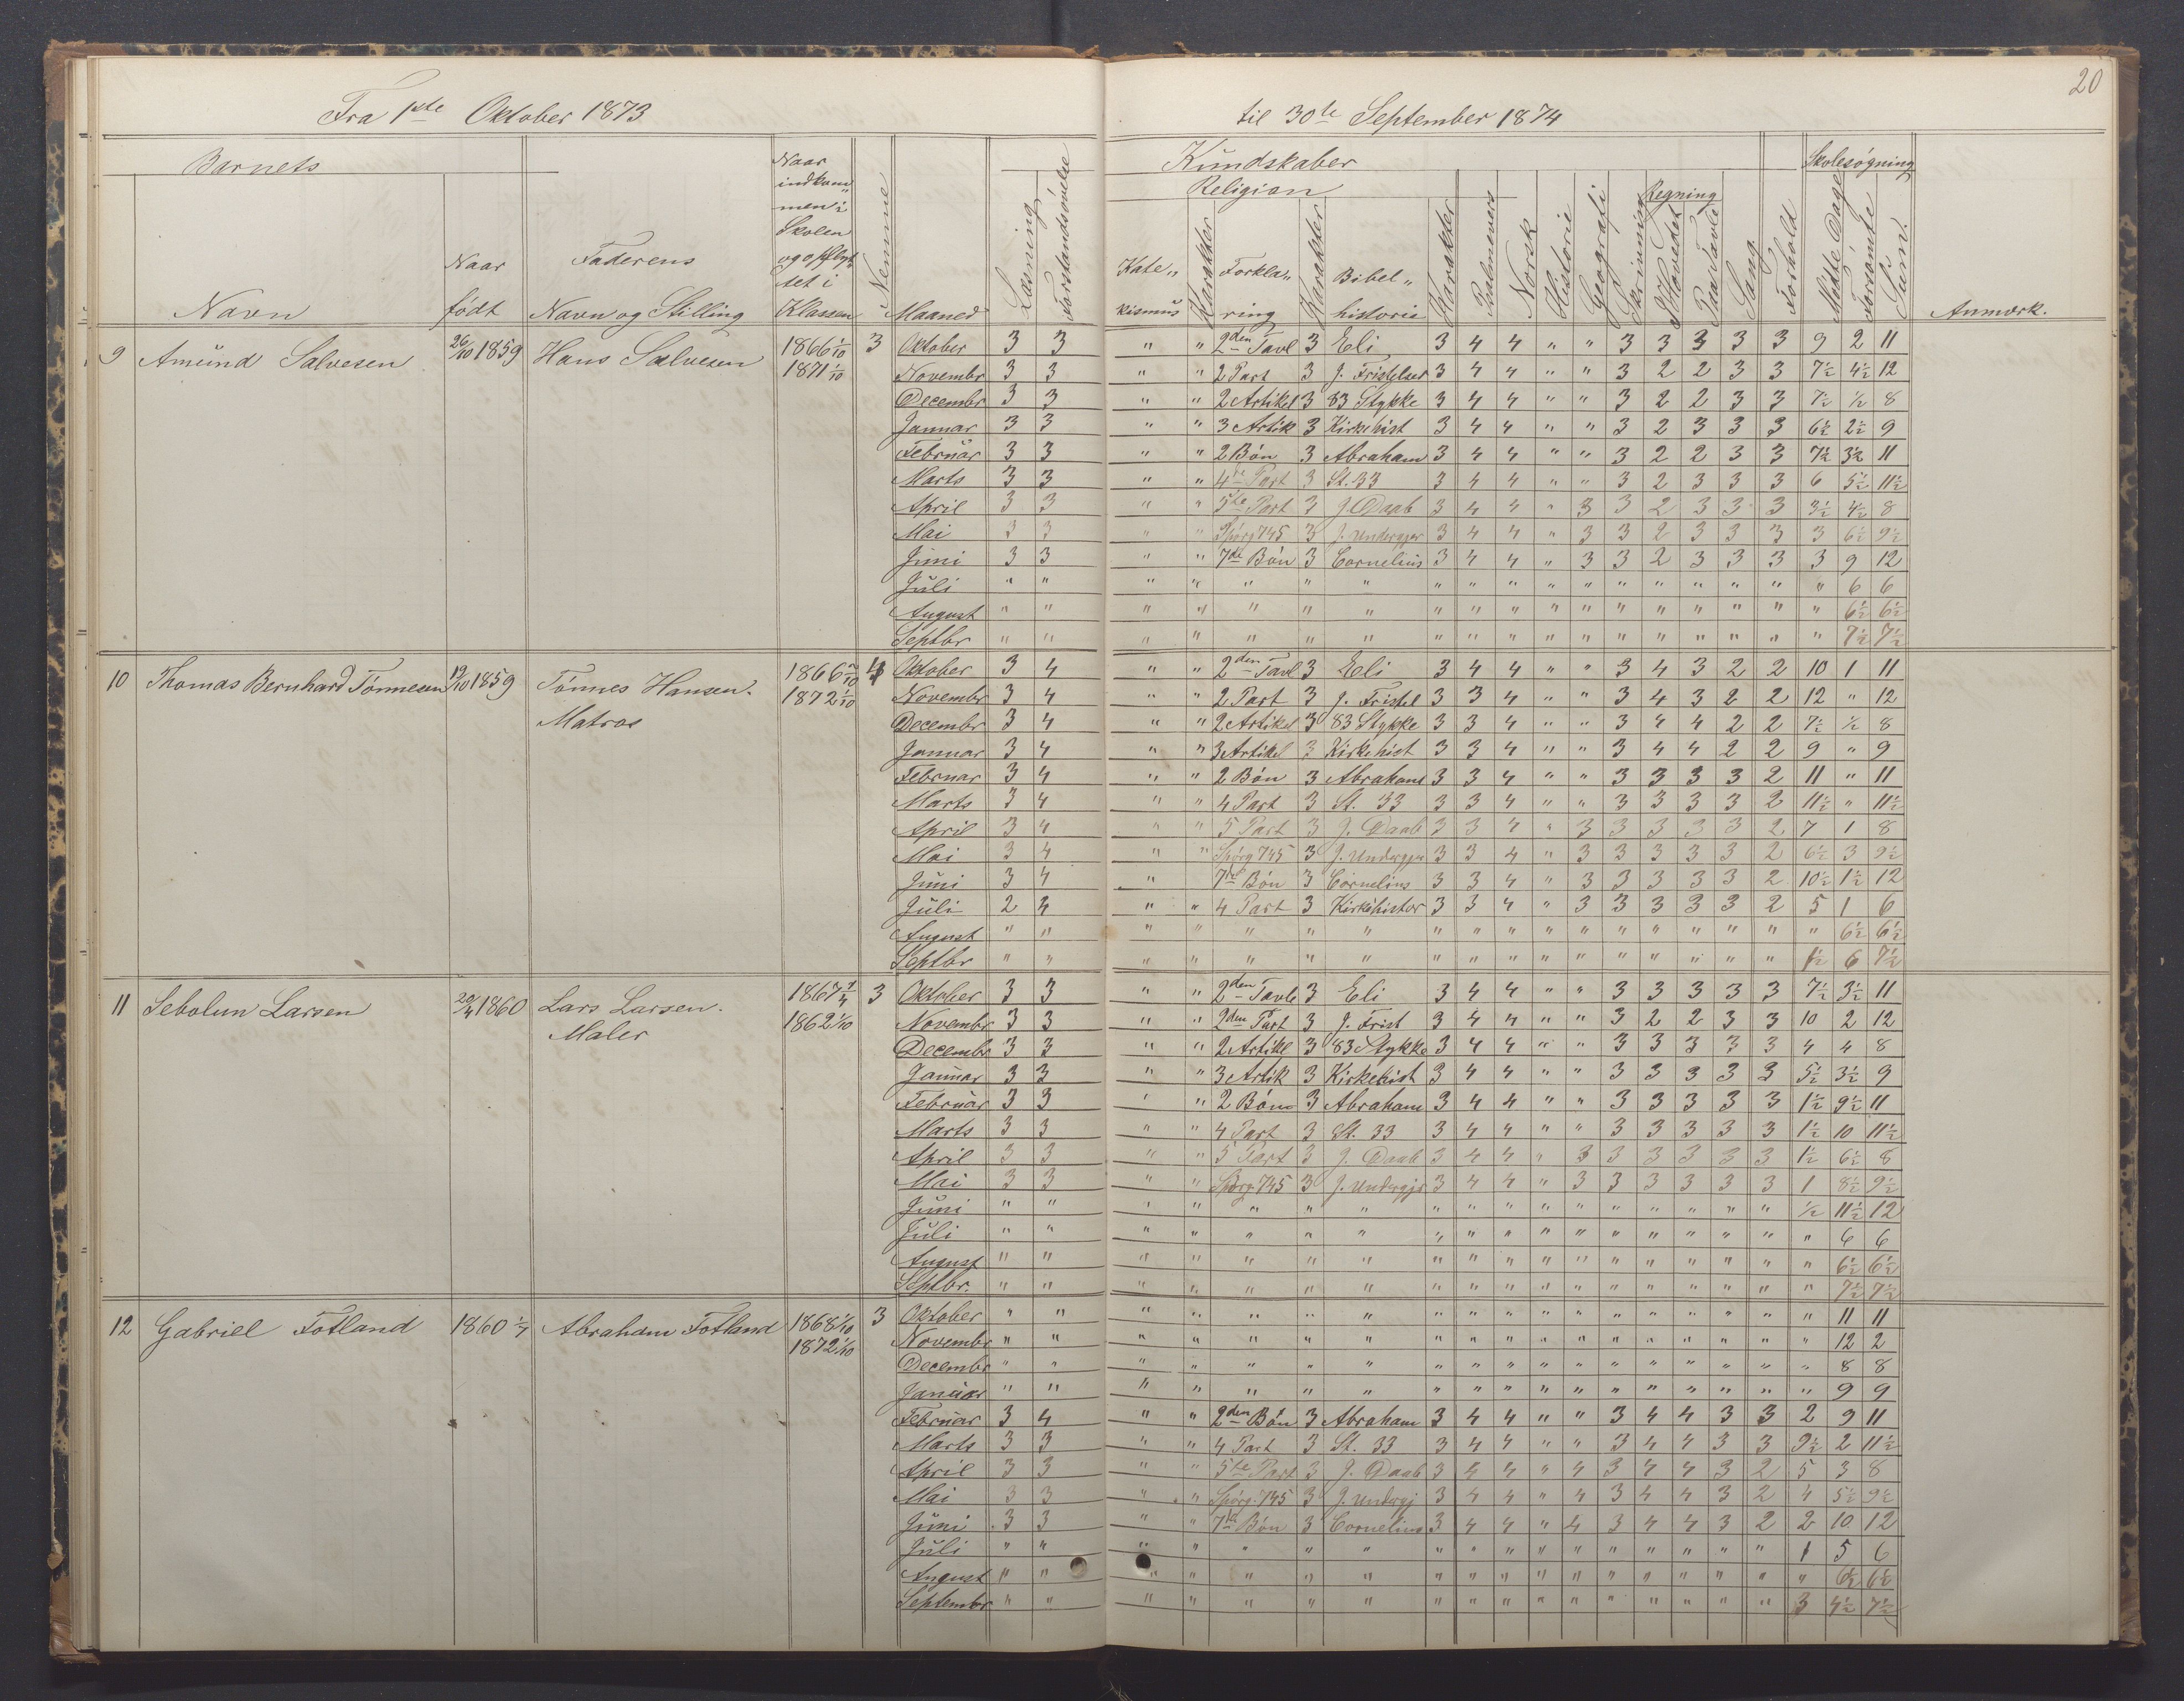 20
Fra 1ste Oktober 1873 til 30te September 1874
Barnets
Navn
Naar født
Faderens Navn og Stilling
Naar indkommen i Skolen og opflyttet i Klassen
Nemme
Maaned
Læsning
Forstandsøvelse
Kundskaber
Religion
Katekismus
Karakter
Forklaring
Karakter
Bibelhistorie
Karakter
Psalmevers
Norsk
Historie
Geografi
Skrivning
Regning
I Hovedet
Paa Tavle
Sang
Forhold
Skolesøgning
Mødte Dage
Forsømte
Sum.
Anmærk.
9 Amund Salvesen 26/10 1859 Hans Salvesen 1866 1/10 1871 1/10 3
Oktober 3 3 " " 2den Tavl 3 Eli 3 4 4 " " 3 3 3 3 3 9 2 11
Novembr 3 3 " " 2 Part 3 J. Fristelser 3 4 4 " " 3 2 2 3 3 7½ 4½ 12
Decembr 3 3 " " 2 Artikel 3 83 Stykke 3 4 4 " " 3 2 2 3 3 7½ ½ 8
Januar 3 3 " " 3 Artik 3 Kirkehist 3 4 4 " " 3 2 3 3 3 6½ 2½ 9
Februar 3 3 " " 2 Bøn 3 Abraham 3 4 4 " " 3 2 2 3 3 7½ 3½ 11
Marts 3 3 " " 4de Part 3 St. 33 3 4 4 " " 3 2 3 3 3 6 5½ 11½
April 3 3 " " 5te Part 3 J. Daab 3 4 4 " 3 3 2 3 3 3 3½ 4½ 8
Mai 3 3 " " Spørg 745 3 J. Undergjer 3 4 4 " 3 3 2 3 3 3 3 6½ 9½
Juni 3 3 " " 7de Bøn 3 Cornelius 3 4 4 " 3 3 2 3 3 3 3 9 12
Juli " " " " " " " " " " " " " " " " " " 6 6
August " " " " " " " " " " " " " " " " " " 6½ 6½
Septbr " " " " " " " " " " " " " " " " " " 7½ 7½
10 Thomas Bernhard Tønnesen 19/10 1859 Tønnes Hansen. Matros 1866 1872 1/10 4
Oktober 3 4 " " 2den Tavl 3 Eli 3 4 4 " " 3 4 3 2 2 10 1 11
Novembr 3 4 " " 2 Part 3 J. Fristel 3 3 4 " " 3 4 3 2 2 12 " 12
Decembr 3 4 " " 2 Artikel 3 83 Stykke 3 3 4 " " 3 4 4 2 2 7½ ½ 8
Januar 3 4 " " 3 Artikel 3 Kirkehist 3 3 4 " " 3 4 4 2 2 9 " 9
Februar 3 4 " " 2 Bøn 3 Abraham 3 3 4 " " 3 3 3 3 2 11 " 11
Marts 3 4 " " 4 Part 3 St. 33 3 3 4 " " 3 3 3 3 2 11½ " 11½
April 3 4 " " 5 Part 3 J. Daab 3 3 4 " 3 3 3 3 3 2 7 1 8
Mai 3 4 " " Spørg 745 3 J. Undergjer 3 3 4 " 3 3 3 3 3 2 6½ 3 9½
Juni 3 4 " 7de Bøn 3 Cornelius 3 3 4 " 3 3 3 3 3 2 10½ 1½ 12
Juli 2 4 " " 4 Part 3 Kirkehistor 3 3 4 " 3 3 3 3 3 2 5 1 6
August " " " " " " " " " " " " " " " " " " 6½ 6½
Septbr " " " " " " " " " " " " " " " " " 1½ 6 7½
11 Sebolun Larsen 20/4 1860 Lars Larsen. Maler 1867 1862 1/10 3
Oktober 3 3 " " 2den Tavle 3 Eli 3 4 4 " " 3 3 3 3 3 7½ 3½ 11
Novembr 3 3 " " 2den Part 3 J. Frist 3 4 4 " " 3 2 2 3 3 10 2 12
Decembr 3 3 " " 2 Artikl 3 83 Stykke 3 4 4 " " 3 3 3 3 3 4 4 8
Januar 3 3 " " 3 Artik 3 Kirkehist 3 4 4 " " 3 3 3 3 3 5½ 3½ 9
Februar 3 3 " " 2 Bøn 3 Abraham 3 4 4 " " 3 3 3 3 3 1½ 9½ 11
Marts 3 3 " " 4 Part 3 St. 33 3 4 4 " " 3 3 3 3 3 1½ 10 11½
April 3 3 " " 5 Part 3 J. Daab 3 4 4 " 3 3 3 3 3 3 1½ 6½ 8
Mai 3 3 " " Spørg 745 3 J. Undergjr 3 4 4 " 3 3 3 3 3 3 1 8½ 9½
Juni " " " " " " " " " " " " " " " " " ½ 11½ 12
Juli " " " " " " " " " " " " " " " " " " 6 6
August " " " " " " " " " " " " " " " " " " 6½ 6½
Septbr. " " " " " " " " " " " " " " " " " " 7½ 7½
12 Gabriel Fotland 1860 Abraham Fotland 1868 1/10 1872 1/10 3
Oktober " " " " " " " " " " " " " " " " " " 11 11
Novembr " " " " " " " " " " " " " " " " " " 12 2
Decembr " " " " " " " " " " " " " " " " " " 8 8
Januar " " " " " " " " " " " " " " " " " " 9 9
Februar 3 4 " " 2den Bøn 3 Abraham 3 4 4 " " 3 4 4 3 3 2 9 11
Marts 3 3 " " 4 Part 3 St. 33 3 4 4 " " 3 4 4 3 3 9½ 2 11½
April 3 3 " " 5te Part 3 J. Daab 3 4 4 " 4 3 4 4 3 2 5 3 8
Mai 3 3 " " Spørg. 745 3 J. Undergj 3 4 4 " 4 3 4 4 3 2 4 5½ 9½
Juni 3 3 " " 7de Bøn 3 Cornelius 3 4 4 " 4 3 4 4 3 2 2 10 12
Juli " " " " " " " " " " " " " " " " " 1 5 6
August " " " " " " " " " " " " " " " " " " 6½ 6½
Septembr " " " " " " " " " " " " " " " " " 3 4½ 7½